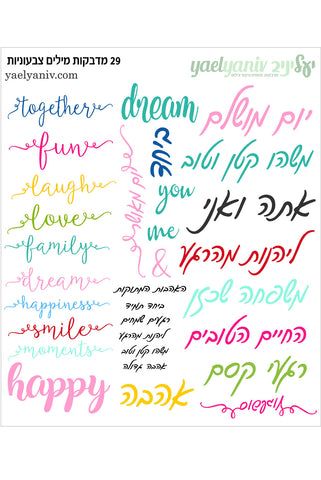 29 מדבקות מילים צבעוניות
yaelyaniv.com
יעליניב yaelyaniv
together
fun
laugh
love
family
dream
happiness
smile
moments
happy
dream
ביחד
you
me
&
האהבות המתוקות
ביחד תמיד
רגעים שמחים
ליהנות מהרגע
משהו קטן וטוב
אהבה גדולה
אהבה
יום מושלם
משהו קטן וטוב
אתה ואני
ליהנות מהרגע
משפחה שכזו
החיים הטובים
רגעי קסם